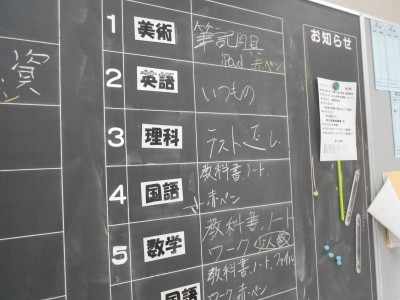 お知らせ
資
1 美術 筆記用具
赤ペン
2 英語 いつもの
3 理科 テスト直し
4 国語 教科書、ノート
赤ペン
5 数学 教科書、ノート
ワーク
教科書、ノート、ファイル
国語 ワーク 赤ペン